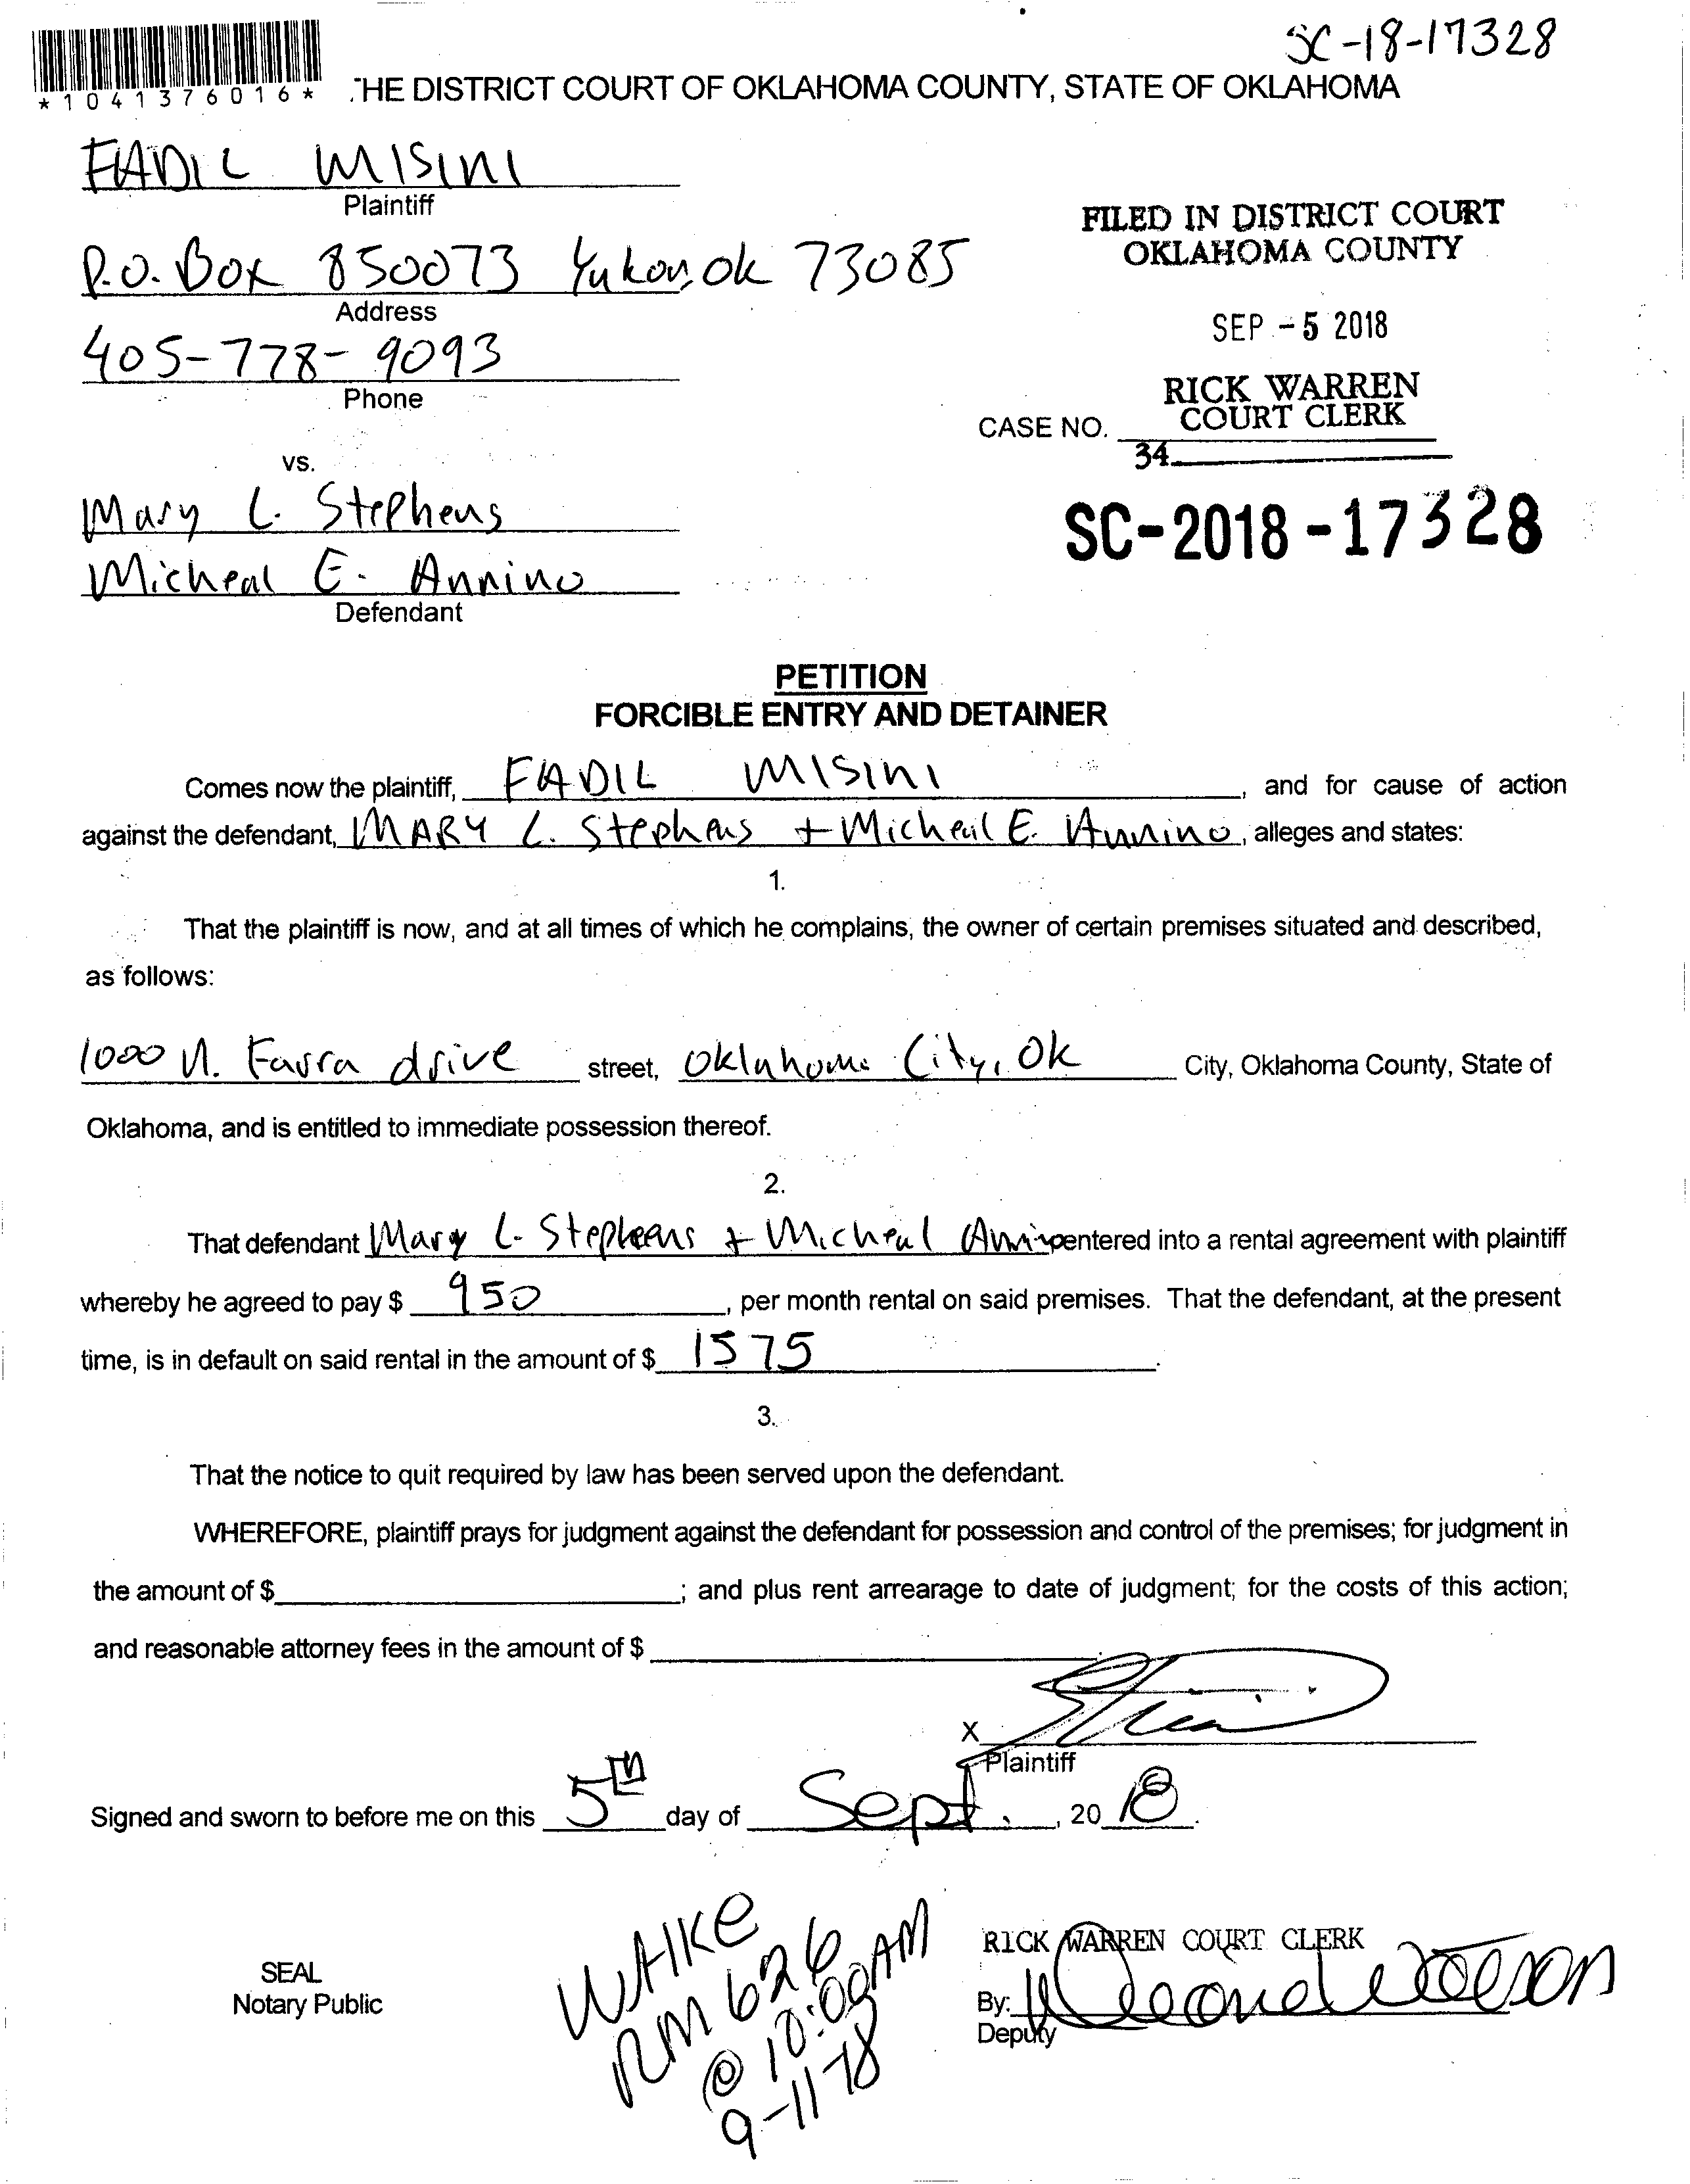 SC-18-17328
*1041376016*
THE DISTRICT COURT OF OKLAHOMA COUNTY, STATE OF OKLAHOMA
FADIL MISINI
Plaintiff
P.O. Box 850073 Yukon, ok 73085
Address
405-778-9093
Phone
FILED IN DISTRICT COURT
OKLAHOMA COUNTY
SEP - 5 2018
RICK WARREN
COURT CLERK
CASE NO.
34
SC-2018-17328
vs.
Mary L. Stephens
Micheal E. Annino
Defendant
PETITION
FORCIBLE ENTRY AND DETAINER
Comes now the plaintiff, FADIL MISINI, and for cause of action
against the defendant, MARY L. Stephens + Micheal E. Annino, alleges and states:
1.
That the plaintiff is now, and at all times of which he complains, the owner of certain premises situated and described,
as follows:
1000 N. Farra drive street, Oklahoma City, Ok City, Oklahoma County, State of
Oklahoma, and is entitled to immediate possession thereof.
2.
That defendant Mary L. Stephens + Micheal Annino entered into a rental agreement with plaintiff
whereby he agreed to pay $ 950, per month rental on said premises. That the defendant, at the present
time, is in default on said rental in the amount of $ 1575.
3.
That the notice to quit required by law has been served upon the defendant.
WHEREFORE, plaintiff prays for judgment against the defendant for possession and control of the premises; for judgment in
the amount of $ ; and plus rent arrearage to date of judgment; for the costs of this action;
and reasonable attorney fees in the amount of $
X
Plaintiff
Signed and sworn to before me on this 5th day of Sept., 2018.
SEAL
Notary Public
WAIKE
RM 626
@ 10:00AM
9-11-18
RICK WARREN COURT CLERK
By:
Deputy